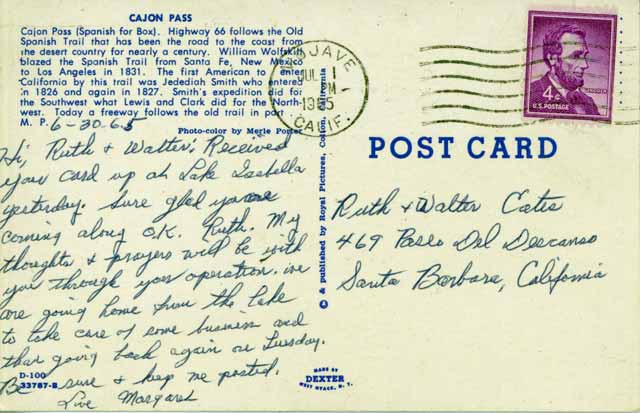 CAJON PASS
Cajon Pass (Spanish for Box). Highway 66 follows the Old
Spanish Trail that has been the road to the coast from
the desert country for nearly a century. William Wolfskill
blazed the Spanish Trail from Santa Fe, New Mexico
to Los Angeles in 1831. The first American to enter
California by this trail was Jedediah Smith who entered
in 1826 and again in 1827. Smith's expedition did for
the Southwest what Lewis and Clark did for the North-
west. Today a freeway follows the old trail in part.
M. P. 6-30-65
Photo-color by Merle Porter
Hi, Ruth & Walter; Received
your card up at Lake Isabella
yesterday. Sure glad you are
coming along O.K. Ruth. My
thoughts & prayers will be with
you through your operation. We
are going home from the Lake
to take care of some business and
than going back again on Tuesday.
Be sure & keep me posted.
Love Margaret
D-100
33787-B
© & published by Royal Pictures, Colton, California
MOJAVE
JUL 1
PM
1965
CALIF.
4¢
U.S. POSTAGE
POST CARD
Ruth & Walter Cates
469 Paseo Del Descanso
Santa Barbara, California
MADE BY
DEXTER
WEST NYACK, N. Y.